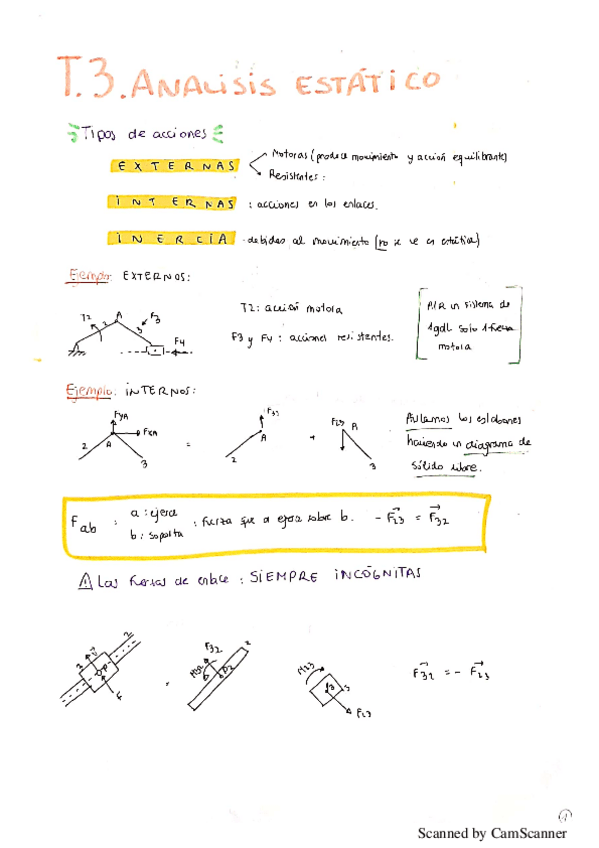 T.3. ANALISIS ESTÁTICO
Tipos de acciones
EXTERNAS
Motoras (produce movimiento y acción equilibrante)
Resistentes:
INTERNAS : acciones en los enlaces.
INERCIA debidas al movimiento (no se ve en estática)
Ejemplo: EXTERNOS:
T2 A F3
2 3 F4
T2: acción motora
F3 y F4: acciones resistentes.
sistema de
1gdl solo 1 fuerza
motora
Ejemplo: INTERNOS:
FyA
FxA
2 A 3
=
F32
A
2
+
F23
A
3
Aislamos los eslabones
haciendo un diagrama de
sólido libre.
Fab : a: ejerce
b: soporta
: fuerza que a ejerce sobre b. -F23 = F32
⚠ Las fuerzas de enlace: SIEMPRE INCÓGNITAS
2
3
P
F
=
F32
M32
P2
2
M23
3
F23
F32 = - F23
1
Scanned by CamScanner